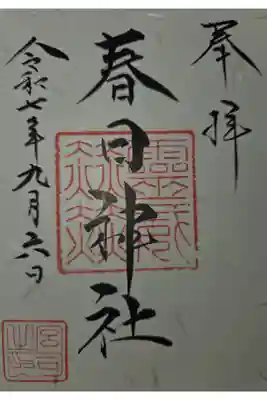 奉拝
春日神社
令和七年九月六日